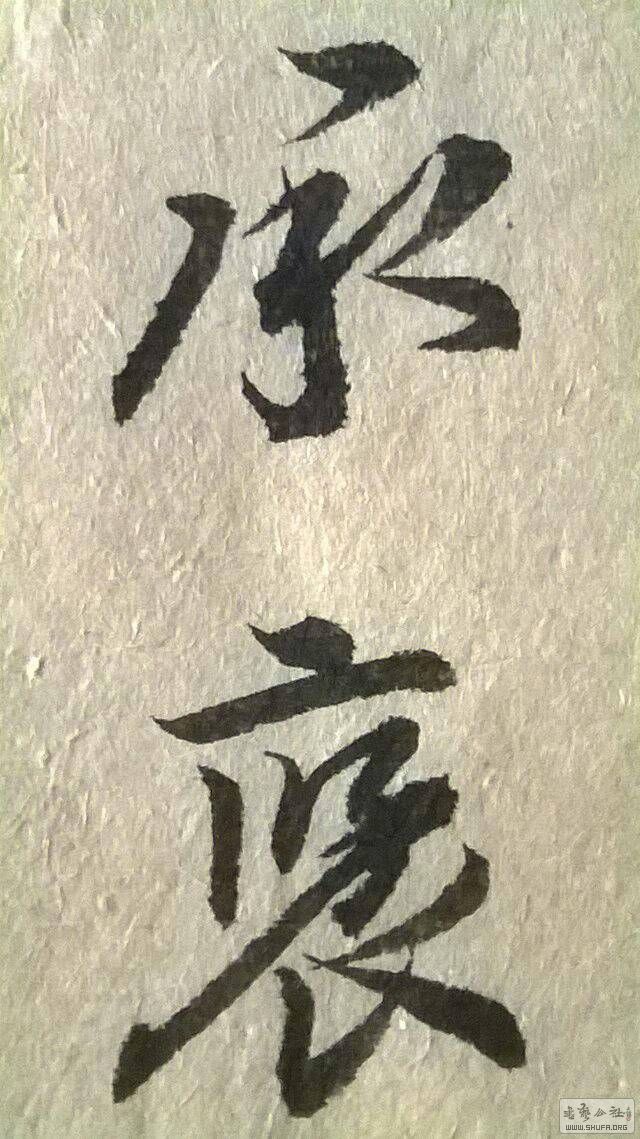 承
褒
書藝公社
WWW.SHUFA.ORG